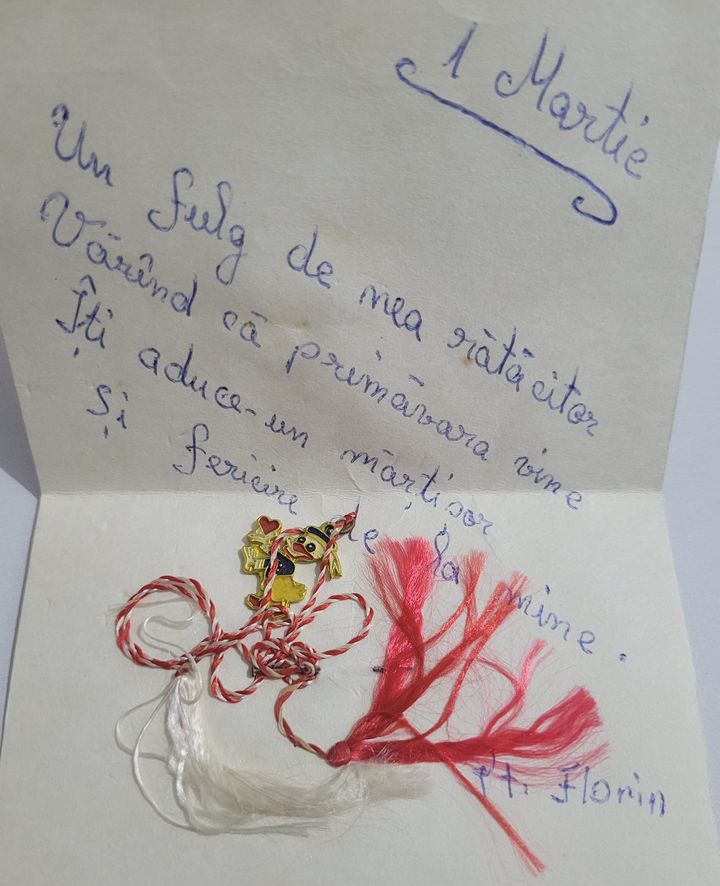 1 Martie
Un fulg de nea rătăcitor
Vărînd că primăvara vine
Îți aduce-un mărțisor
Și fericire de la mine.
Pt. Florin